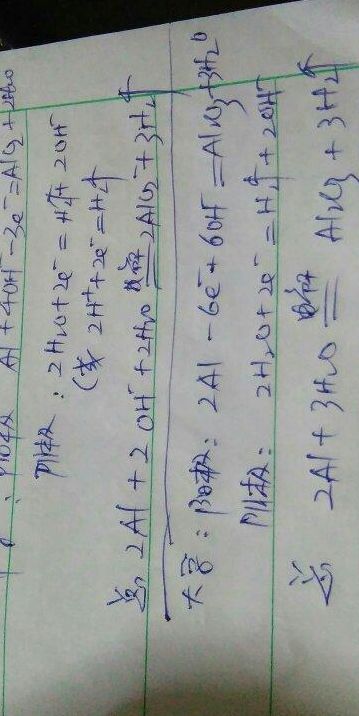 阳极 Al+4OH⁻-3e⁻=AlO₂⁻+2H₂O
阴极: 2H₂O+2e⁻=H₂↑+2OH⁻
(或 2H⁺+2e⁻=H₂↑
总 2Al+2OH⁻+2H₂O 电解 2AlO₂⁻+3H₂↑
: 阳极: 2Al-6e⁻+6OH⁻=Al₂O₃+3H₂O
阴极: 2H₂O+2e⁻=H₂↑+2OH⁻
总 2Al+3H₂O 电解 Al₂O₃+3H₂↑